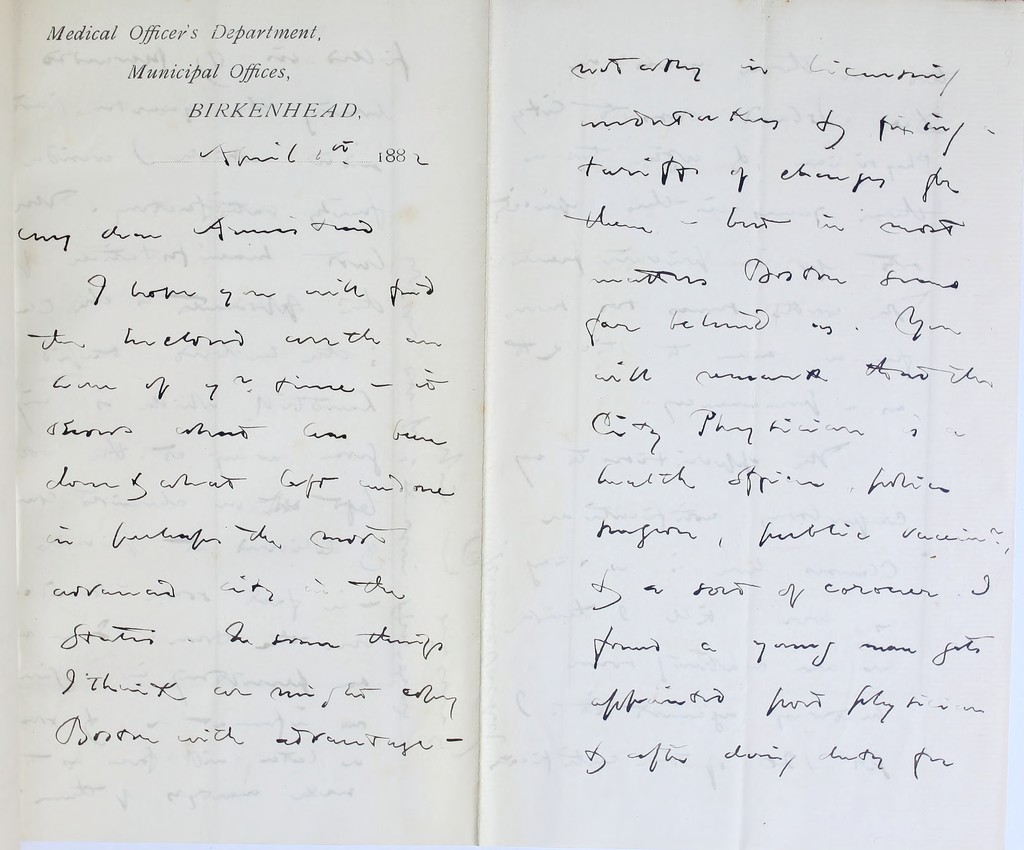 Medical Officer's Department,
Municipal Offices,
BIRKENHEAD,
April 1st 1882
My dear Armistead
I hope you will find
the inclosed worth an
hour of yr time – it
shows what has been
done & what left undone
in perhaps the most
advanced city in the
States. In some things
I think we might copy
Boston with advantage –
notably in licensing
undertakers & fixing
tariffs of charges for
them – but in most
matters Boston seems
far behind us. You
will remark that the
City Physician is a
health officer, police
surgeon, public vaccinr,
& a sort of coroner. I
found a young man gets
appointed port physician
& after doing duty for